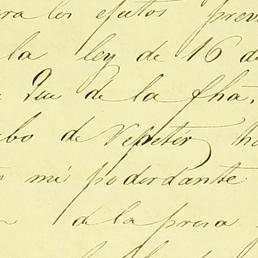 ra los efectos prev
la ley de 16 de
Que de la fha.
abo de Vepetir ha
mi poderdante
de la presa